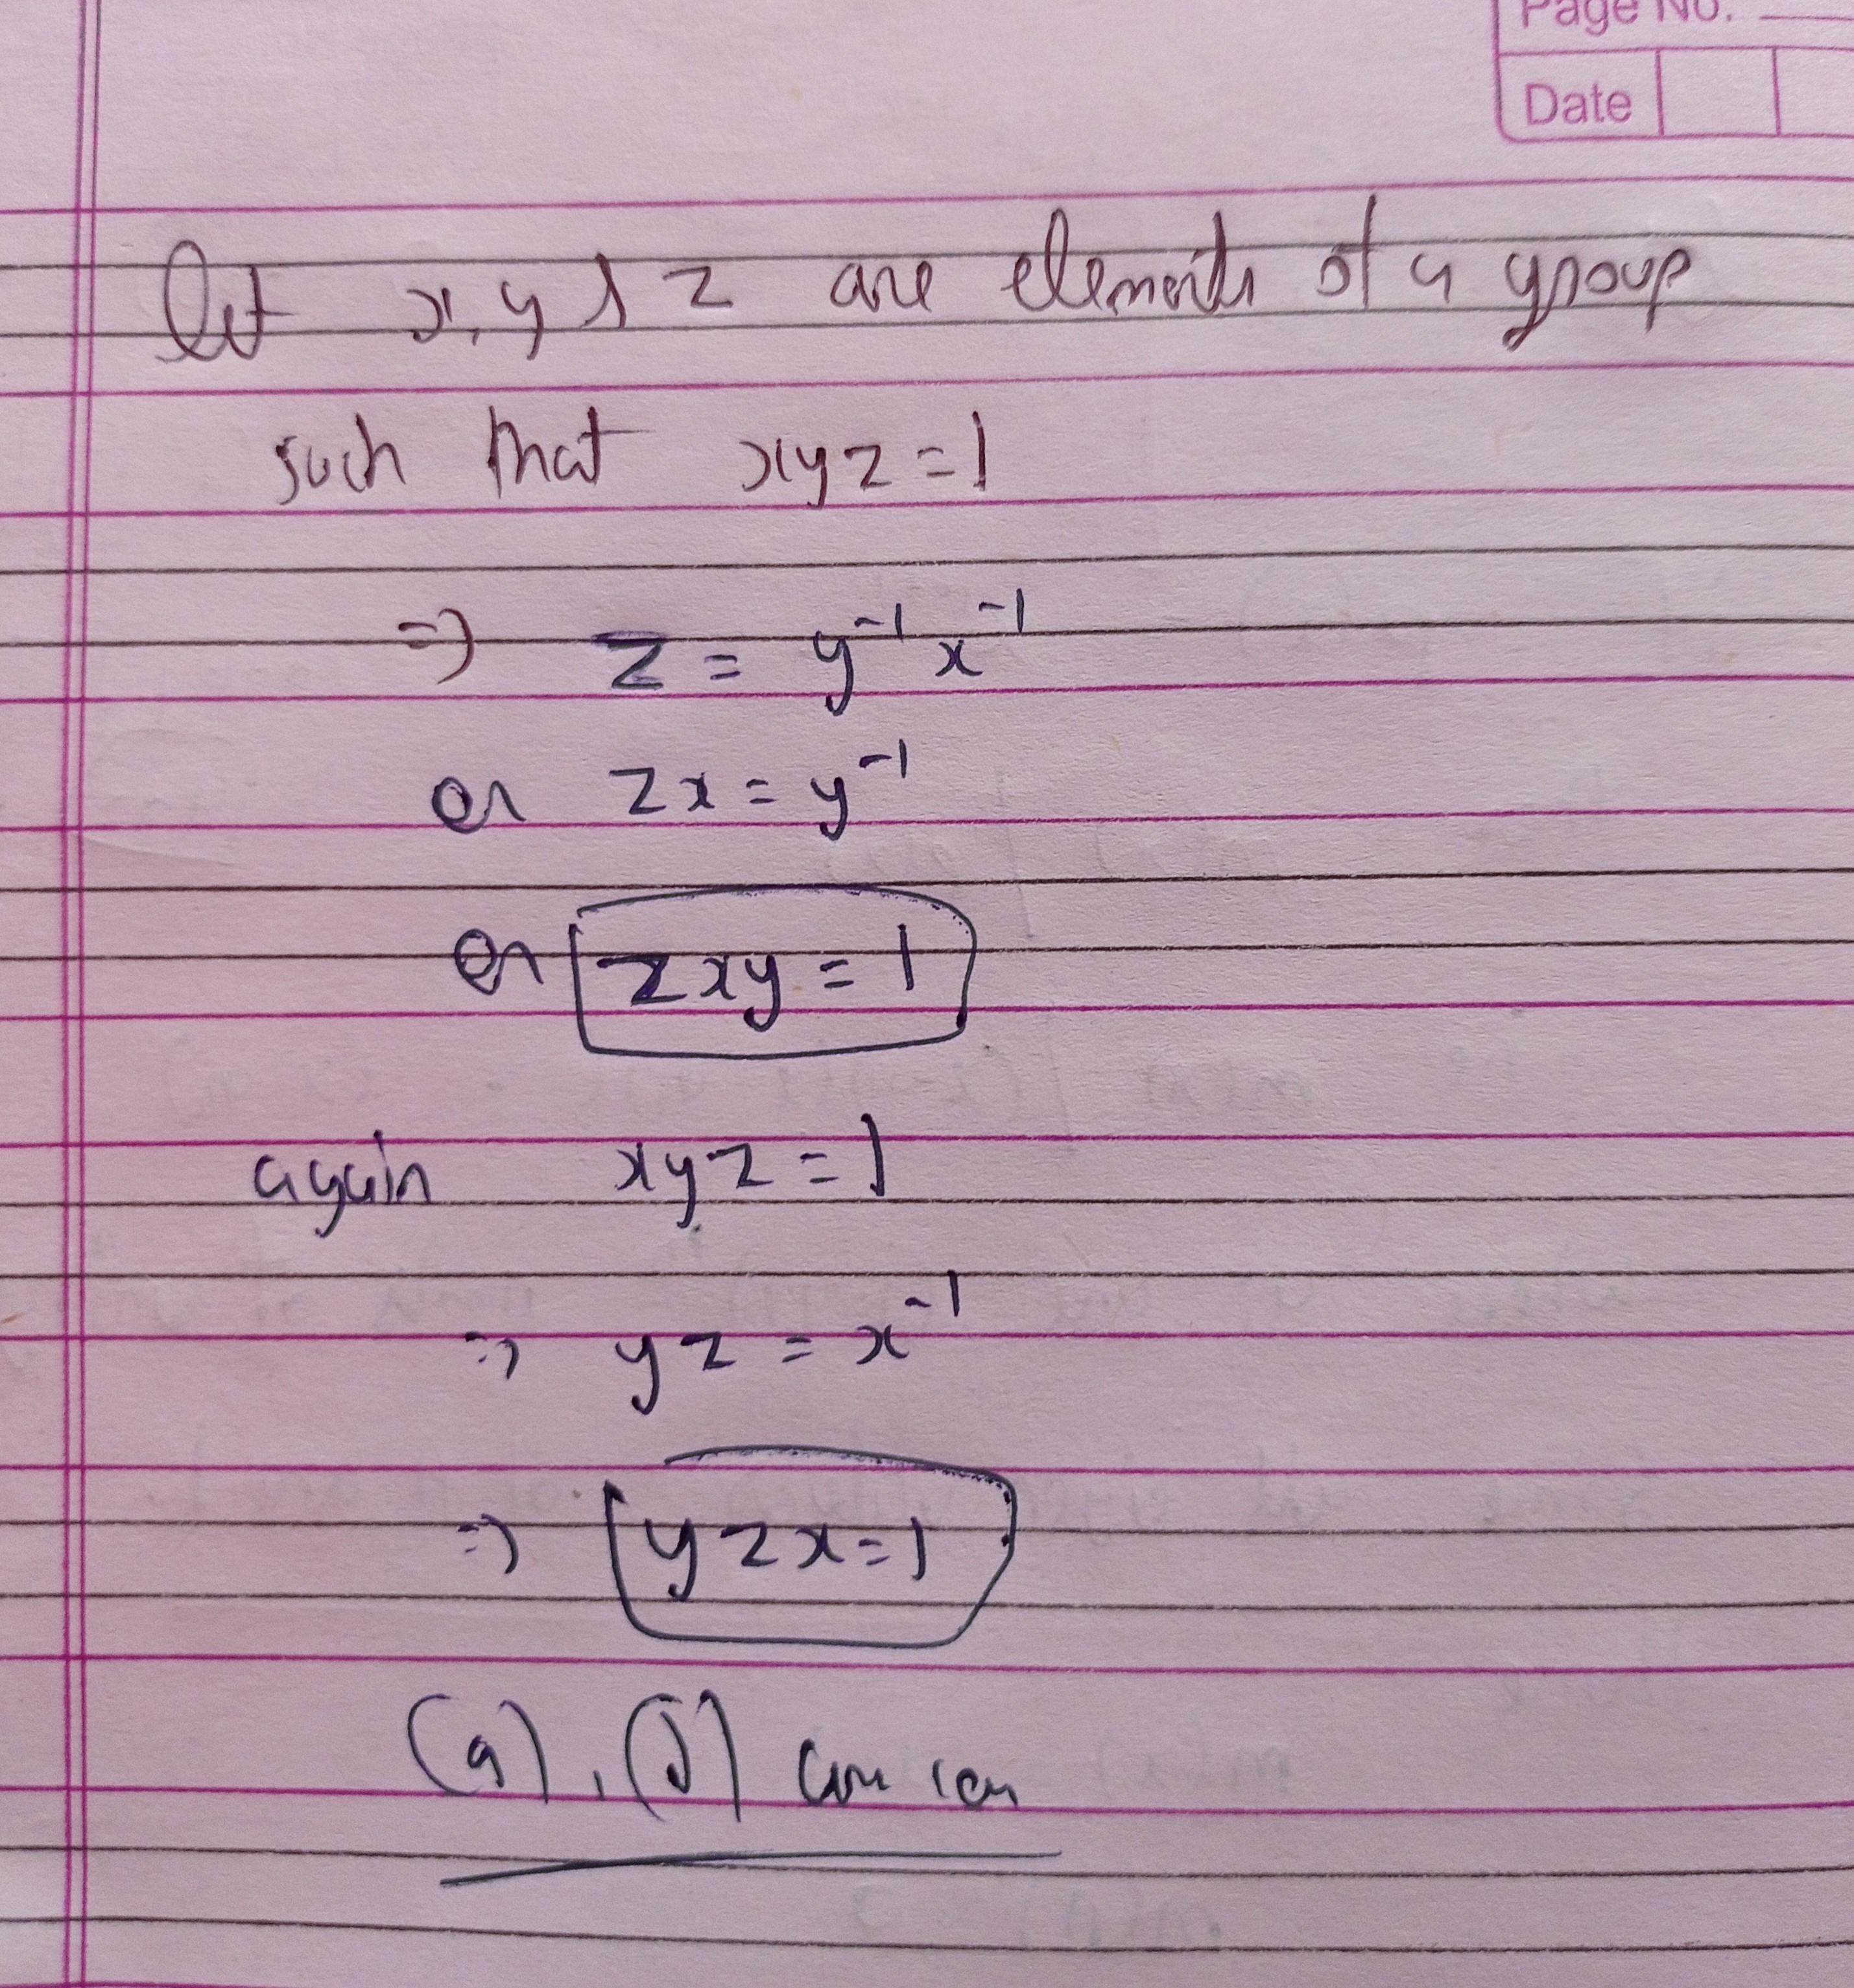 Page No.
Date
let x, y & z are elements of a group
such that xyz = 1
=> z = y⁻¹ x⁻¹
or zx = y⁻¹
or zxy = 1
again xyz = 1
=> yz = x⁻¹
=> yzx = 1
(a), (d)